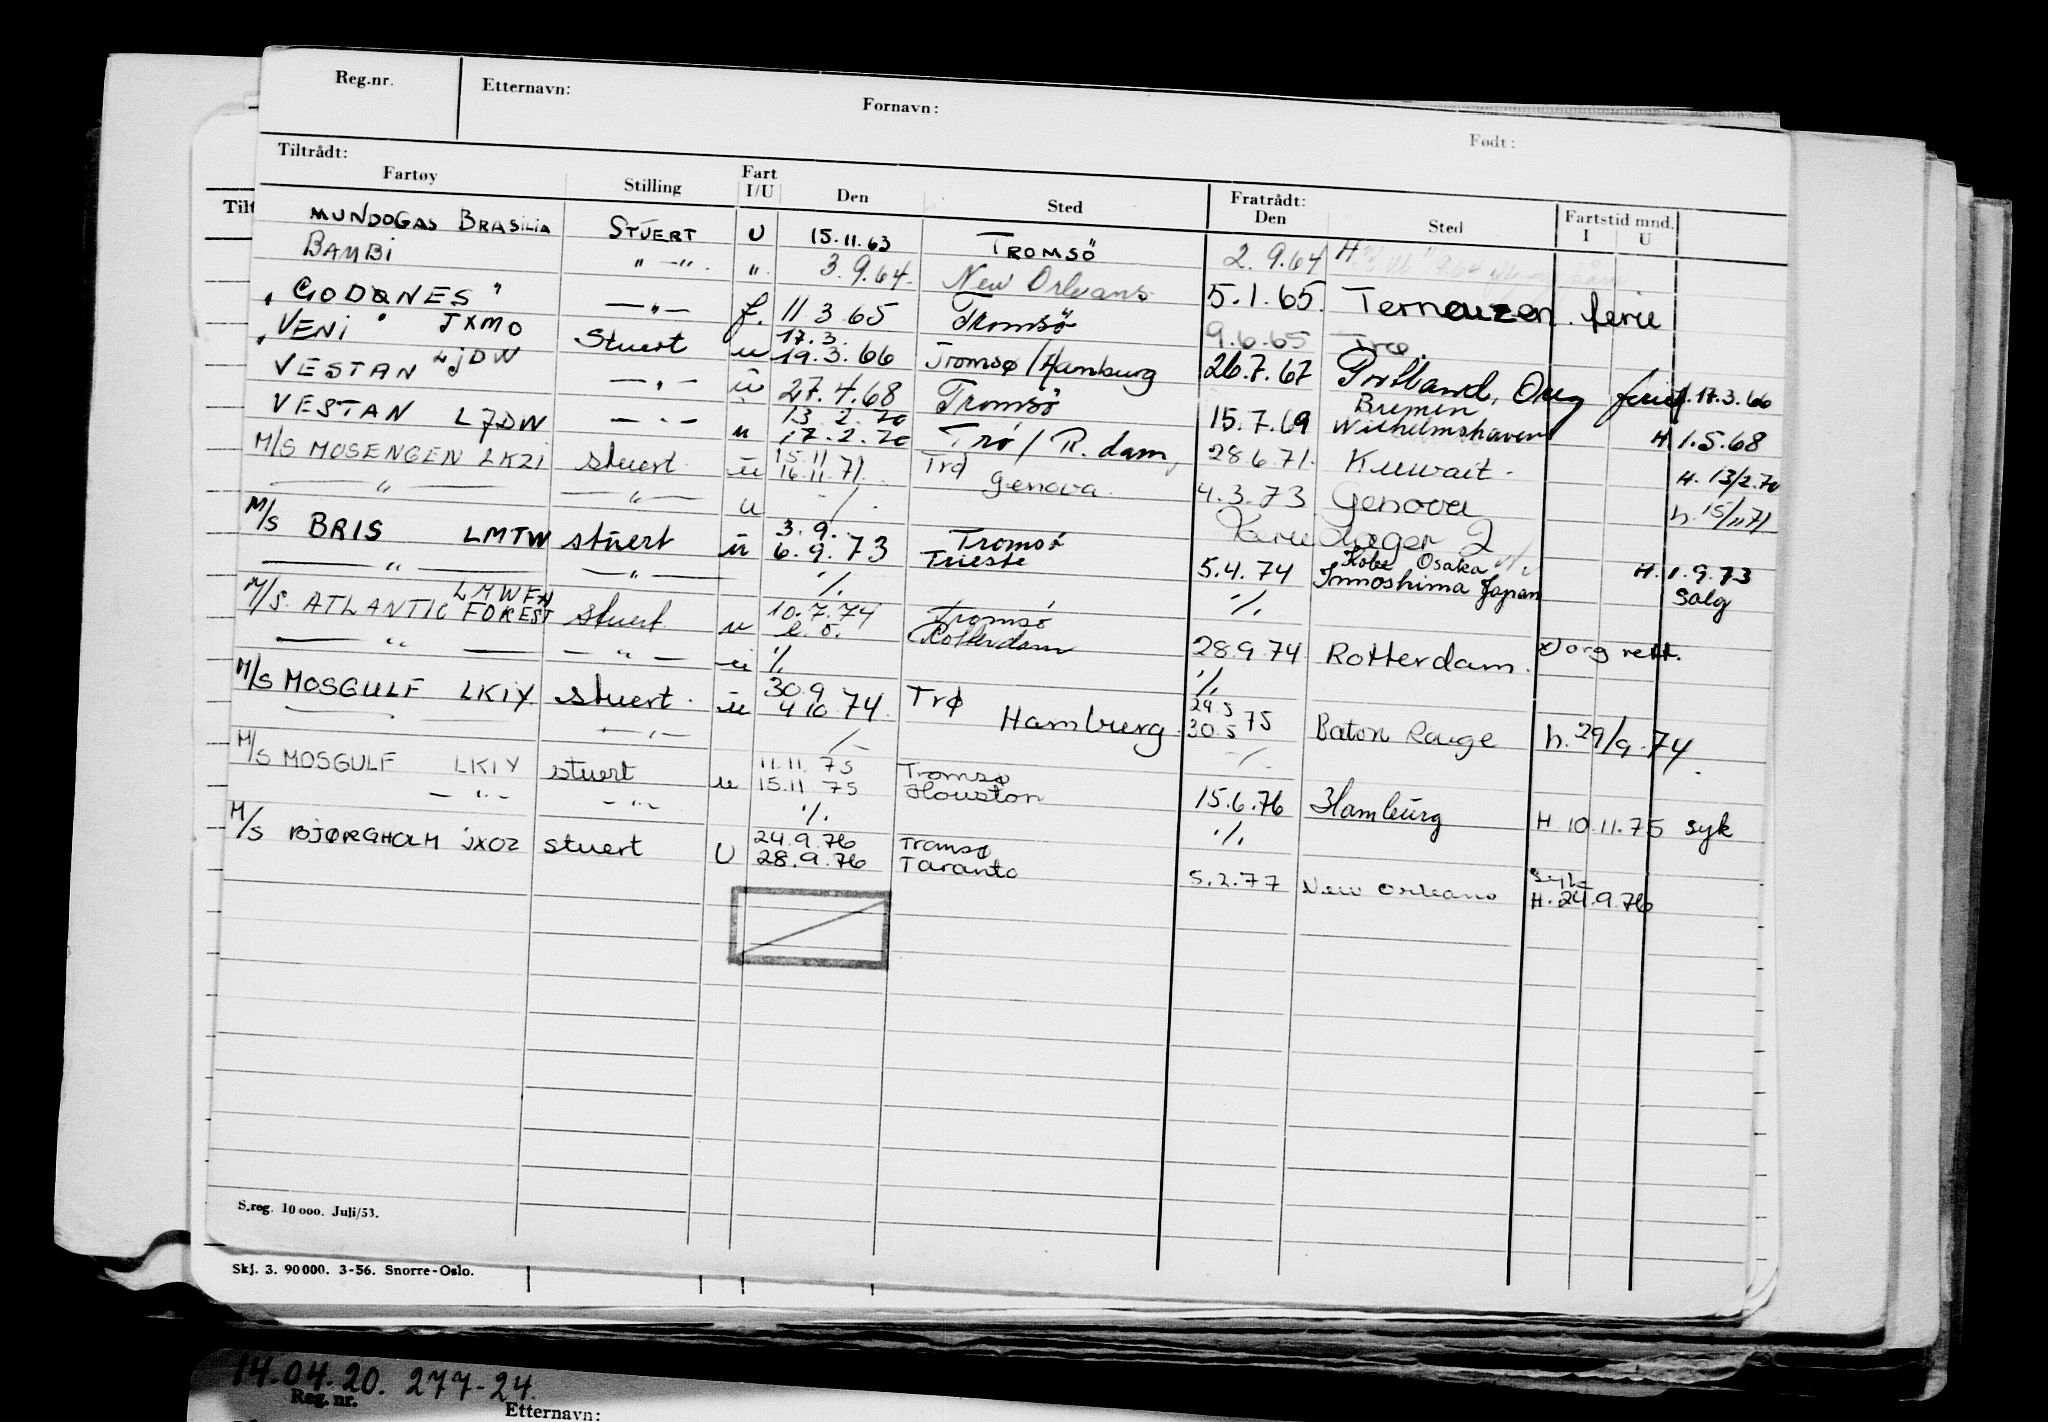 Reg.nr. Etternavn: Fornavn: Født:
Tiltrådt: Fratrådt:
Fartøy Stilling Fart I/U Den Sted Den Sted Fartstid mnd. I U
Tilt
MUNDOGAS BRASILIA STUERT U 15.11.63 TROMSÖ 2.9.64 H
BAMBI " —"— . " 3.9.64. New Orleans 5.1.65. Terneuzen. ferie
" GODØNES " —"— f. 11.3.65 Tromsö 9.6.65 Trø
" VENI " JXMO Stuert u 17.3. 19.3.66 Tromsø/Hamburg 26.7.67 Portland, Oreg ferie H. 17.3.66
VESTAN LJDW —"— u 27.4.68 Tromsö 15.7.69 Bremen Wilhelmshaven H 1.5.68
VESTAN LJDW —"— u 13.2.70 17.2.70 Trö / R.dam, 28.6.71. Kuwait. H. 13/2.70
M/S MOSENGEN LKZI stuert u 15.11 16.11.71. Trø Genova. 4.3.73 Genova h. 15/11 71
—"— —"— u -/. Ferie dager 2
M/S BRIS LMTW stuert u 3.9. 6.9.73 Tromsö Trieste 5.4.74 Kobe Osaka Innoshima Japan H. 1.9.73 Salg
—"— —"— -/. -/.
M/S ATLANTIC FOREST LMWFN stuert u 10.7.74 Tromsö Rotterdam 28.9.74 Rotterdam. x) org rett.
—"— —"— u -/. -/.
M/S MOSGULF LKIY stuert. u 30.9 4.10.74. Trø Hamburg. 29.5 30.5 75 Baton Rouge h. 29/9.74.
—"— -/. -/.
M/S MOSGULF LKIY stuert u 11.11.75 15.11.75 Tromsø Houston 15.6.76 Hamburg H 10.11.75 syk
—"— —"— -/. -/.
M/S BJØRGHOLM JXOZ stuert U 24.9.76 28.9.76 Tromsø Taranto 5.2.77 New Orleans syk H. 24.9.76
S.reg. 10 000. Juli/53.
Skj. 3. 90 000. 3-56. Snorre-Oslo.
14.04.20. 277-24.
Reg. nr. Etternavn: